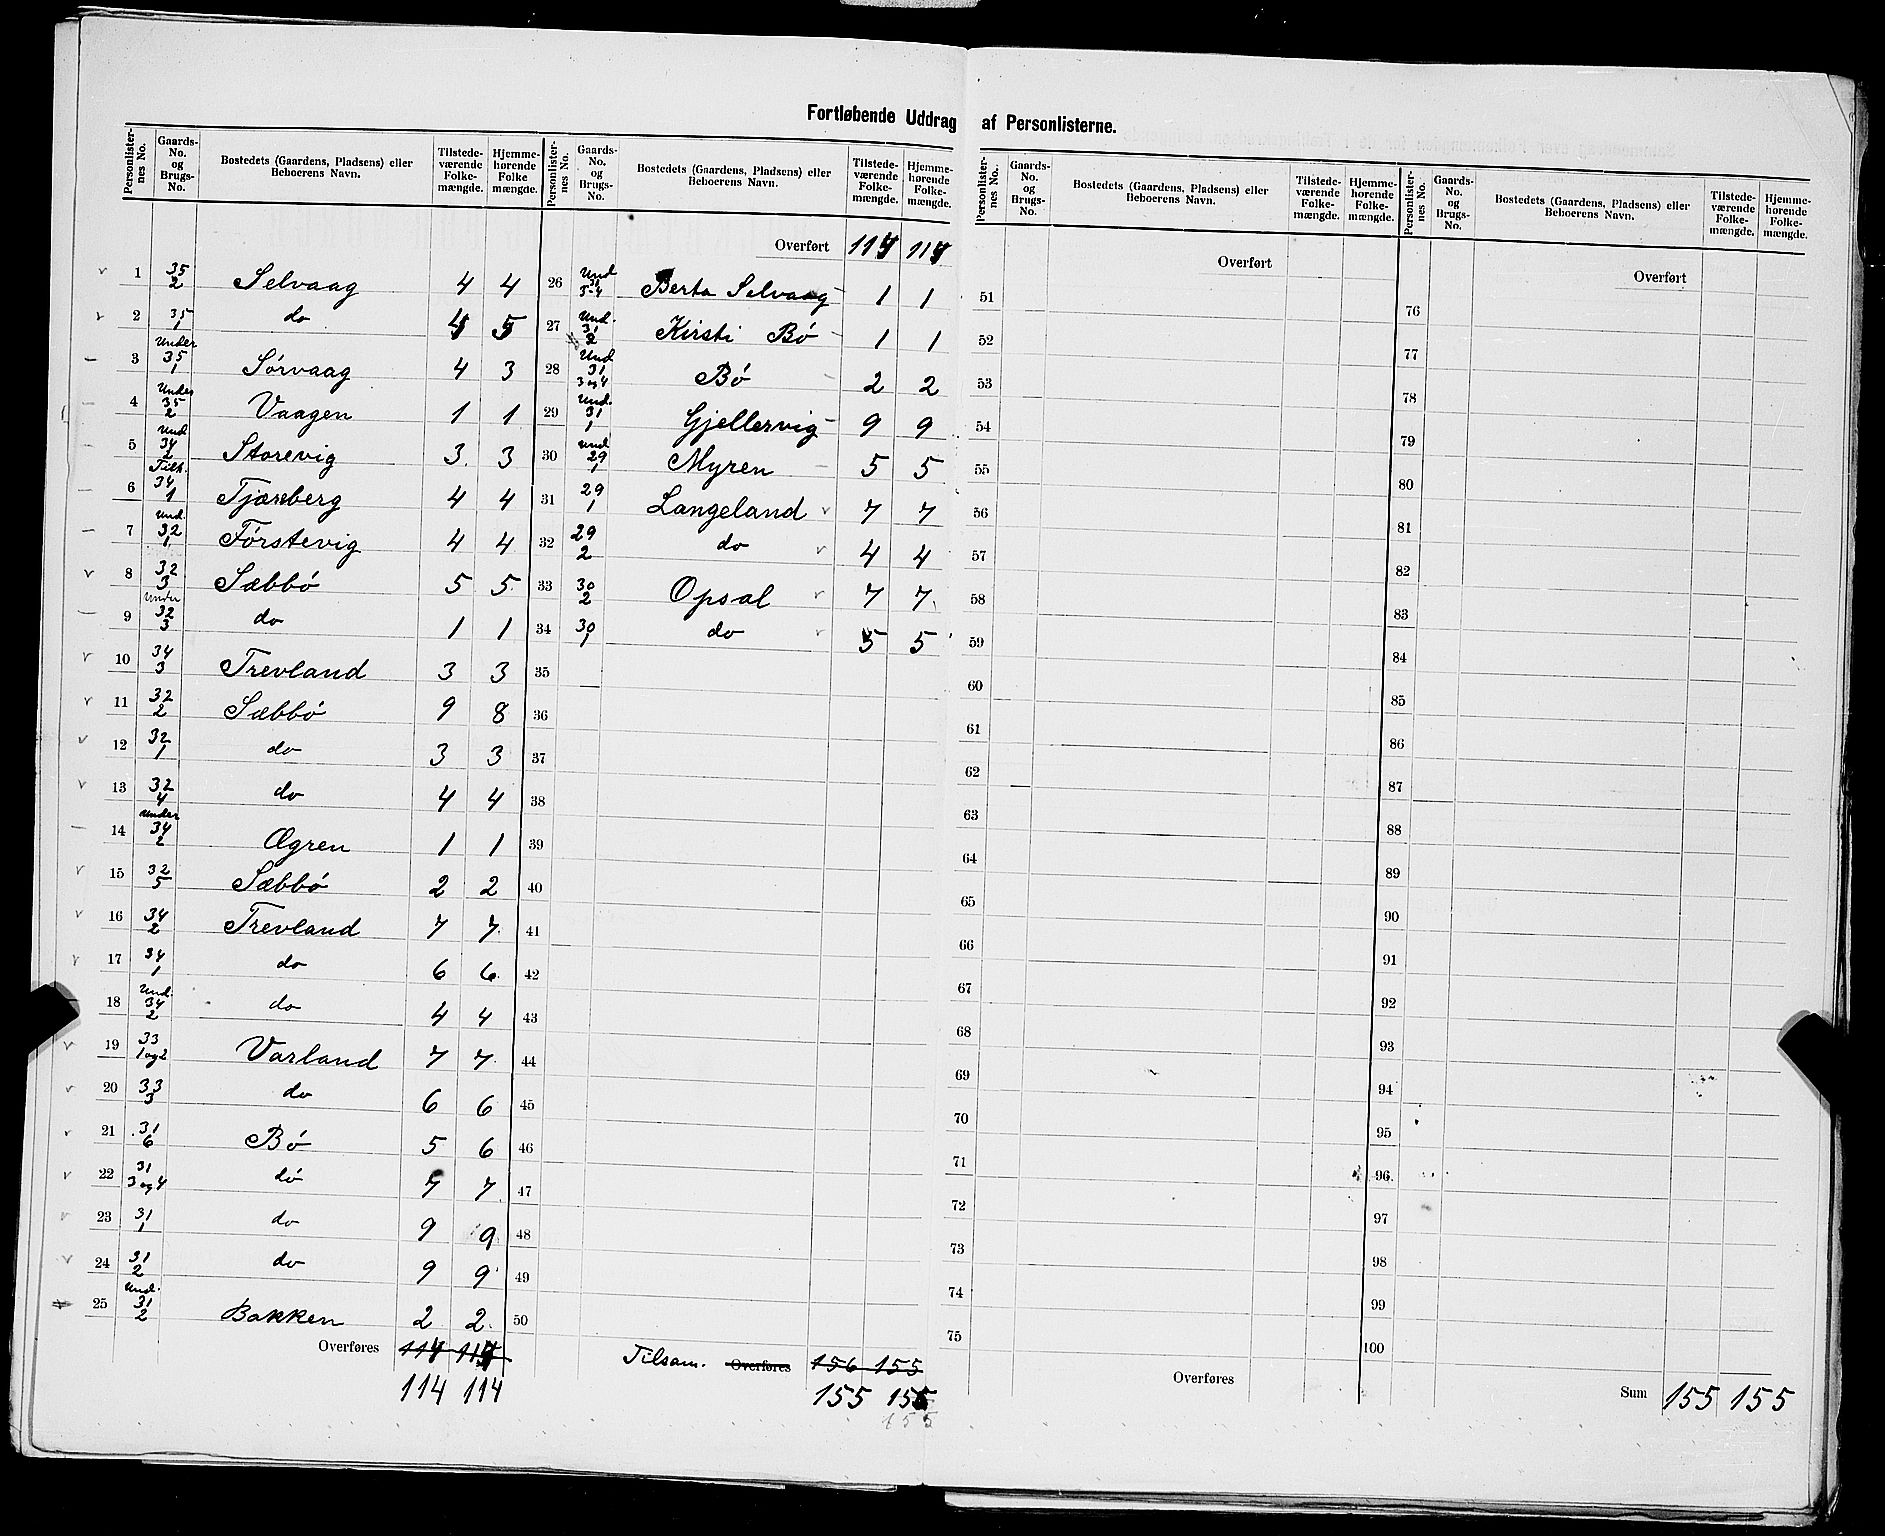 Fortløbende Uddrag af Personlisterne.
Personlister-nes No. | Gaards-No. og Brugs-No. | Bostedets (Gaardens, Pladsens) eller Beboerens Navn. | Tilstede-værende Folke-mængde. | Hjemme-hørende Folke mængde.
1 | 35 2 | Selvaag | 4 | 4
2 | 35 1 | do | 4 | 5
3 | Under 35 1 | Sørvaag | 4 | 3
4 | Under 35 2 | Vaagen | 1 | 1
5 | Und 34 2 | Storevig | 3 | 3
6 | Tilh. 34 1 | Tjæreberg | 4 | 4
7 | Und. 32 1 |Førstevig | 4 | 4
8 | 32 3 | Sæbbø | 5 | 5
9 | Under 32 3 | do | 1 | 1
10 | 34 3 | Trevland | 3 | 3
11 | 32 2 | Sæbbø | 9 | 8
12 | 32 1 | do | 3 | 3
13 | 32 4 | do | 4 | 4
14 | Under 34 2 | Øgren | 1 | 1
15 | 32 5 | Sæbbø | 2 | 2
16 | 34 2 | Trevland | 7 | 7
17 | 34 1 | do | 6 | 6
18 | Und. 34 2 | do | 4 | 4
19 | 33 1 og 2 | Varland | 7 | 7
20 | 33 3 | do | 6 | 6
21 | 31 6 | Bø | 5 | 6
22 | 31 3 og 4 | do | 7 | 7
23 | 31 1 | do | 9 | 9
24 | 31 2 | do | 9 | 9
25 | Und. 31 2 | Bakken | 2 | 2
Overføres
114 114
Personlister-nes No. | Gaards-No. og Brugs-No. | Bostedets (Gaardens, Pladsens) eller Beboerens Navn. | Tilstede-værende Folke-mængde. | Hjemme-hørende Folke-mængde.
Overført 114 114
26 | Und 31 3-4 | Berta Selvaag | 1 | 1
27 | Und. 31 2 | Kirsti Bø | 1 | 1
28 | Und 31 3 og 4 | Bø | 2 | 2
29 | Und. 31 1 | Gjellervig | 9 | 9
30 | Und 29 1 | Myren | 5 | 5
31 | 29 1 | Langeland | 7 | 7
32 | 29 2 | do | 4 | 4
33 | 30 2 | Opsal | 7 | 7
34 | 30 1 | do | 5 | 5
35
36
37
38
39
40
41
42
43
44
45
46
47
48
49
50
Tilsam. Overføres 156 155
155 155
155
Personlister-nes No. | Gaards-No. og Brugs-No. | Bostedets (Gaardens, Pladsens) eller Beboerens Navn. | Tilstede-værende Folke-mængde. | Hjemme-hørende Folke-mængde.
Overført
51
52
53
54
55
56
57
58
59
60
61
62
63
64
65
66
67
68
69
70
71
72
73
74
75
Overføres
Personlister-nes No. | Gaards-No. og Brugs-No. | Bostedets (Gaardens, Pladsens) eller Beboerens Navn. | Tilstede-værende Folke-mængde. | Hjemme-hørende Folke-mængde.
Overført
76
77
78
79
80
81
82
83
84
85
86
87
88
89
90
91
92
93
94
95
96
97
98
99
100
Sum 155 155